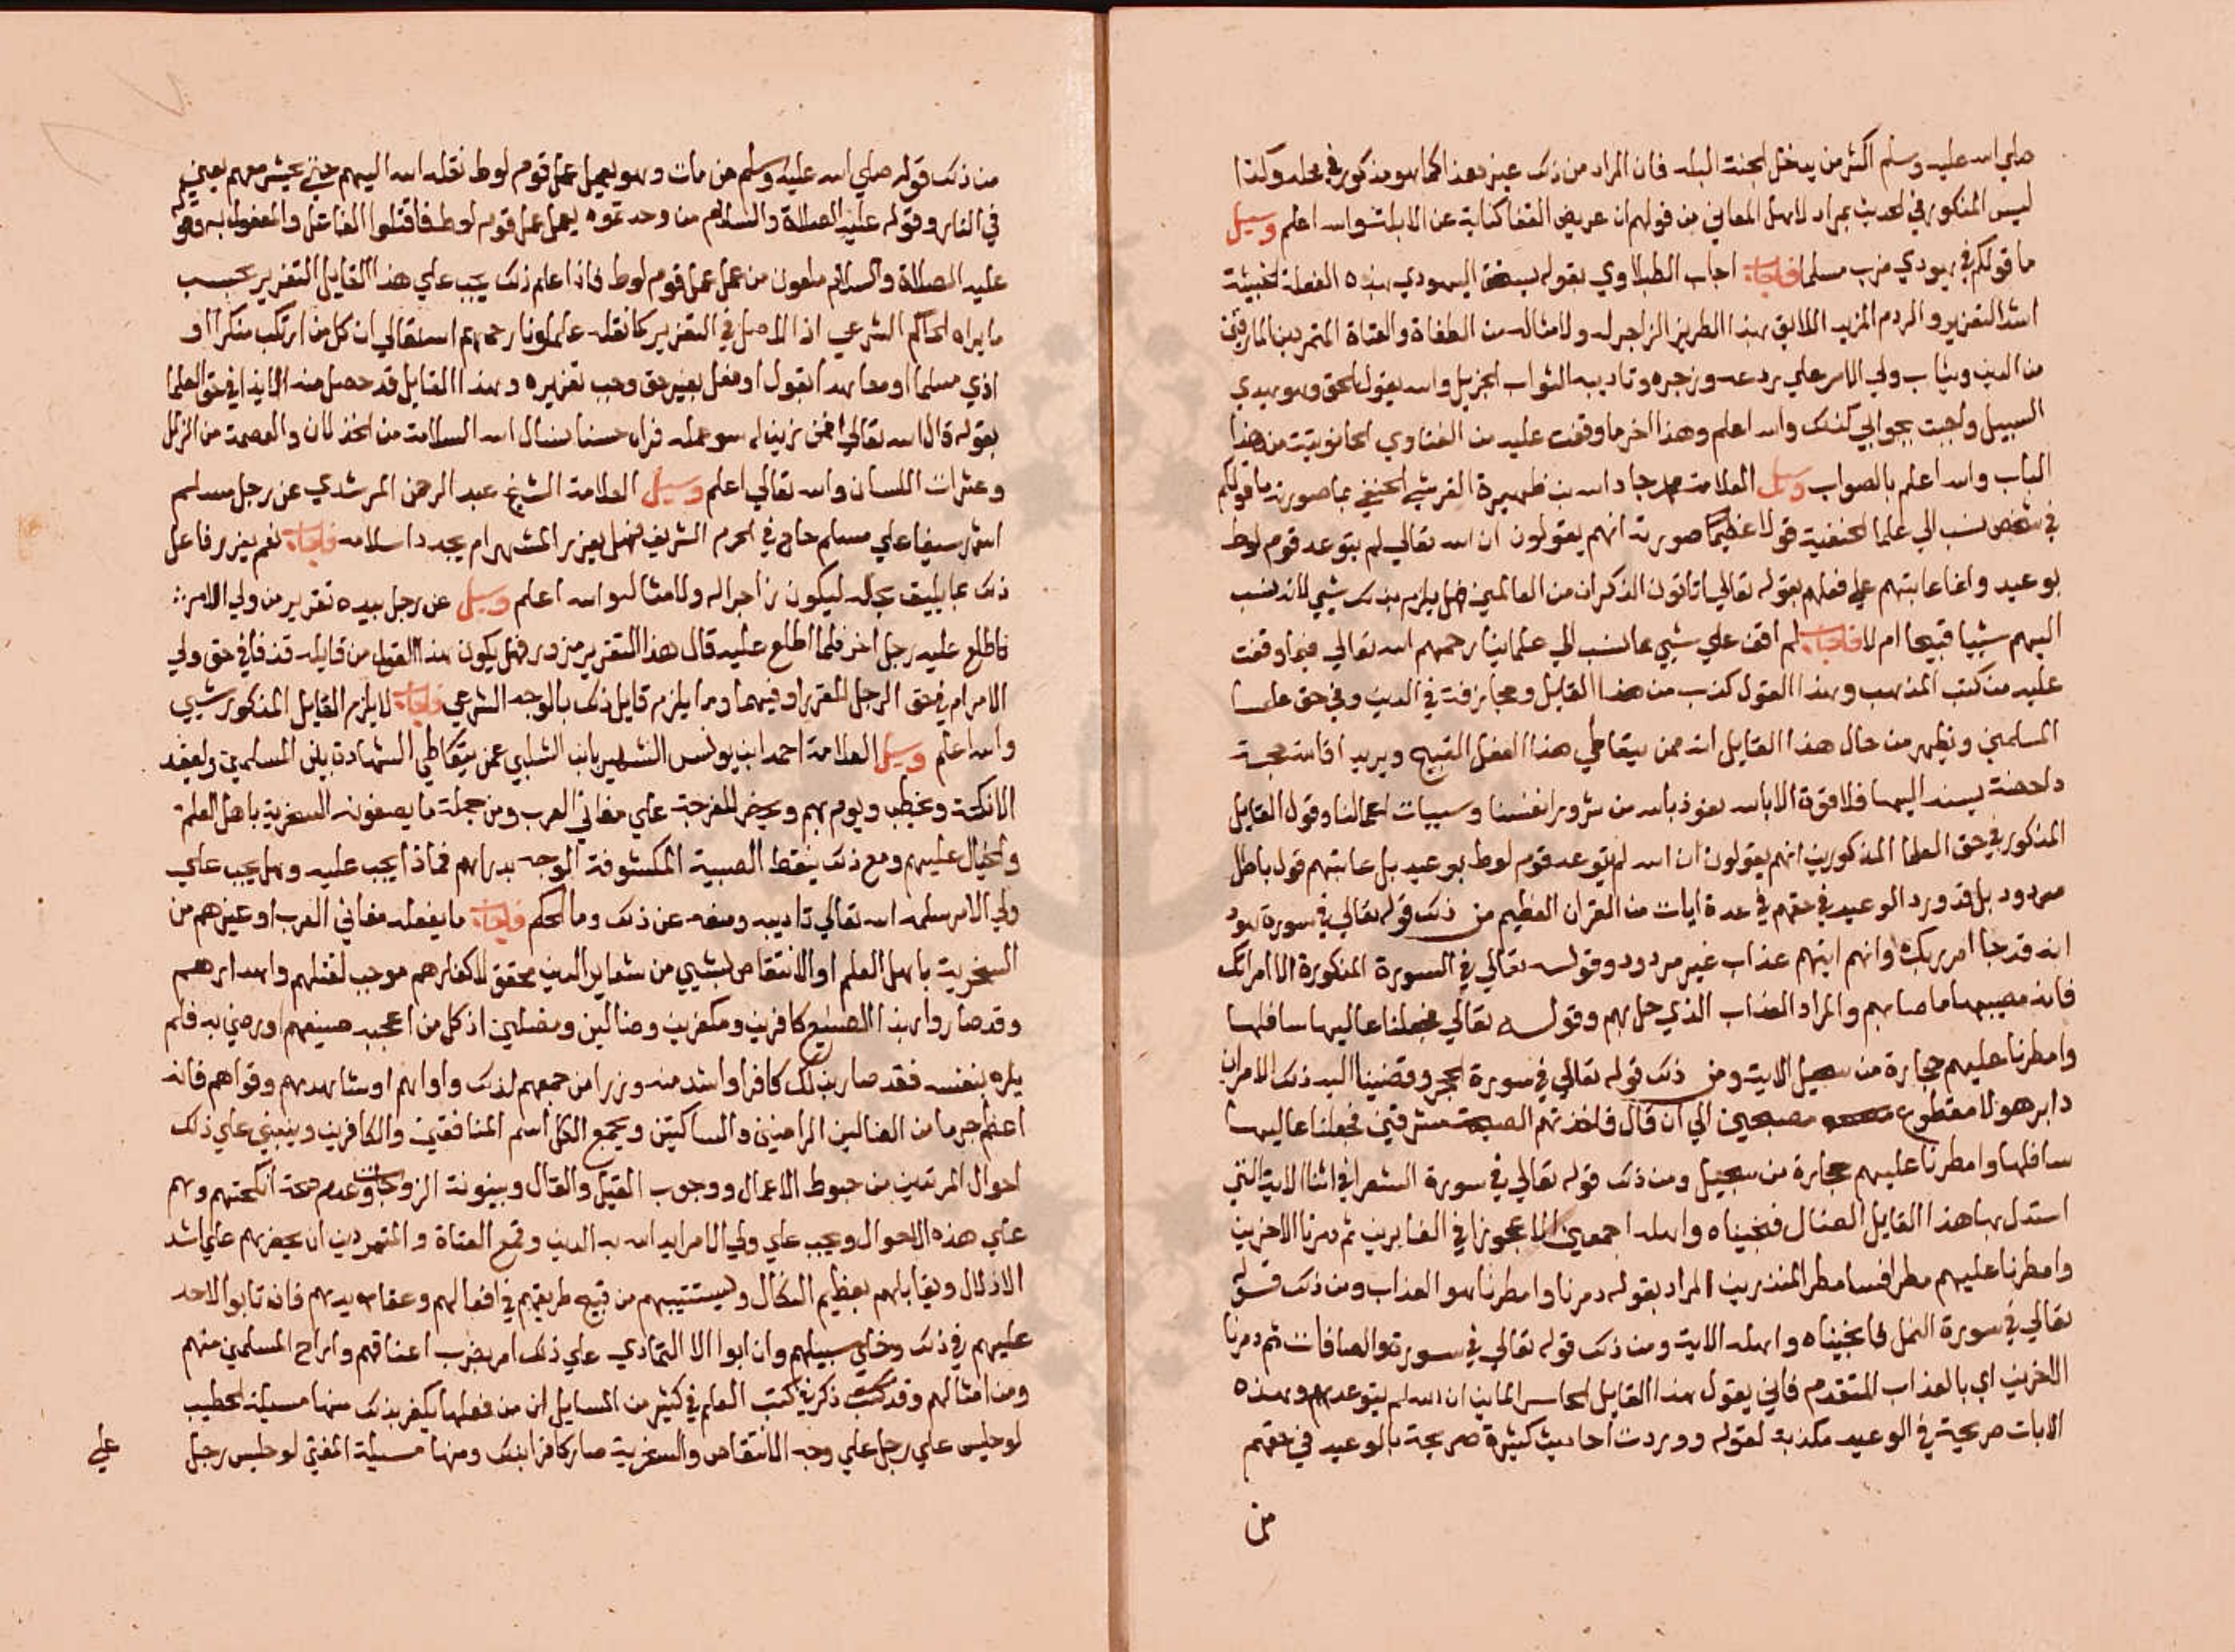 صلي الله عليه وسلم اكثر من يدخل الجنة البله فان المراد من ذلك غير هذا كما هو مذكور في محله وكذا
ليس المذكور في الحديث بمراد لاهل المعاني من قولهم ان عريض القفا كناية عن الابله والله اعلم وسيل
ما قولكم في يهودي ضرب مسلما فاجاب اجاب الطبلاوي بقوله يستحق اليهودي بهذه الفعلة الخبيثة
اشد التعزير والردم المزيد اللايق بهذا الطريز الزاجر له ولامثاله من الطغاة والعتاة المتمردين المارقين
من الدين ويثاب ولي الامر علي ردعه وزجره وتاديبه الثواب الجزيل والله يقول الحق وهو يهدي
السبيل واجبت بجوابي كذلك والله اعلم وهذا اخر ما وقفت عليه من الفتاوي الحانوتية من هذا
الباب والله اعلم بالصواب وسيل العلامة محمد جاد الله بن ظهيرة القرشي الحنفي بما صورته ما قولكم
في شخص نسب الي علما الحنفية قولا عظيما صورته انهم يقولون ان الله تعالي لم يتوعد قوم لوط
بوعيد وانما عاتبهم علي فعلهم بقوله تعالي اتاتون الذكران من العالمين فهل يلزمه بذلك شيي لانه نسب
اليهم شييا قبيحا ام لا فاجاب لم اقف علي شيي مما نسب الي علماينا رحمهم الله تعالي فيما وقفت
عليه من كتب المذهب وهذا القول كذب من هذا القايل ومجازفة في الدين وفي حق علما
المسلمين ويظهر من حال هذا القايل انه ممن يتعاطي هذا الفعل القبيح ويريد اقامة حجة
داحضة يستند اليها فلا قوة الا بالله نعوذ بالله من شرور انفسنا وسييات اعمالنا وقول القايل
المذكور في حق العلما المذكورين انهم يقولون ان الله لم يتوعد قوم لوط بوعيد بل عاتبهم قول باطل
مردود بل قد ورد الوعيد في حقهم في عدة ايات من القران العظيم من ذلك قوله تعالي في سورة هود
انه قد جا امر ربك وانهم اتيهم عذاب غير مردود وقوله تعالي في السورة المذكورة الا امراتك
فانه مصيبها ما صابهم والمراد العذاب الذي حل بهم وقوله تعالي فجعلنا عاليها سافلها
وامطرنا عليهم حجارة من سجيل الاية ومن ذلك قوله تعالي في سورة الحجر وقضينا اليه ذلك الامر ان
دابر هولا مقطوع مصبحين الي ان قال فاخذتهم الصيحة مشرقين فجعلنا عاليها
سافلها وامطرنا عليهم حجارة من سجيل ومن ذلك قوله تعالي في سورة الشعرا في اثنا الاية التي
استدل بها هذا القايل الضال فنجيناه واهله اجمعين الا عجوزا في الغابرين ثم دمرنا الاخرين
وامطرنا عليهم مطرا فسا مطر المنذرين المراد بقوله دمرنا وامطرنا هو العذاب ومن ذلك قوله
تعالي في سورة النمل فانجيناه واهله الاية ومن ذلك قوله تعالي في سورة والصافات ثم دمرنا
الاخرين اي بالعذاب المتقدم فاني يقول هذا القايل الخاسر الماين ان الله لم يتوعدهم وهذه
الايات صريحة في الوعيد مكذبة لقوله ووردت احاديث كثيرة صريحة بالوعيد في حقهم
من
من ذلك قوله صلي الله عليه وسلم من مات وهو يعمل عمل قوم لوط نقله الله اليهم حتي يحشر معهم يعني
في النار وقوله عليه الصلاة والسلام من وجدتموه يعمل عمل قوم لوط فاقتلوا الفاعل والمفعول به وقوله
عليه الصلاة والسلام ملعون من عمل عمل قوم لوط فاذا علم ذلك يجب علي هذا القايل التعزير بحسب
ما يراه الحاكم الشرعي اذ الاصل في التعزير كما نقله علماونا رحمهم الله تعالي ان كل من ارتكب منكرا او
اذي مسلما او معاهدا بقول او فعل بغير حق وجب تعزيره وهذا القايل قد حصل منه الايذا في حق العلما
بقوله قال الله تعالي افمن زين له سو عمله فراه حسنا نسال الله السلامة من الخذلان والعصمة من الزلل
وعثرات اللسان والله تعالي اعلم وسيل العلامة الشيخ عبد الرحمن المرشدي عن رجل مسلم
اشهر سيفا علي مسلم حاج في الحرم الشريف فهل يعزر المشهر ام يجدد اسلامه فاجاب نعم يعزر فاعل
ذلك بما يليق بحاله ليكون زاجرا له ولامثاله والله اعلم وسيل عن رجل بيده تقرير من ولي الامر
فاطلع عليه رجل اخر فلما اطلع عليه قال هذا التقرير مزور فهل يكون هذا القول من قايله قذفا في حق ولي
الامر ام في حق الرجل المقرر او فيهما وما يلزم قايل ذلك بالوجه الشرعي فاجاب لا يلزم القايل المذكور شيي
والله اعلم وسيل العلامة احمد ابن يونس الشهير بابن الشلبي عمن يتعاطي الشهادة بين المسلمين ويعقد
الانكحة ويخطب ويوم بهم ويحضر للفرجة علي مغاني العرب ومن جملة ما يصفونه السخرية باهل العلم
والخيال عليهم ومع ذلك ينقط الصبية المكشوفة الوجه بدراهم فماذا يجب عليه وهل يجب علي
ولي الامر سلمه الله تعالي تاديبه ومنعه عن ذلك وما الحكم فاجاب ما يفعله مغاني العرب او غيرهم من
السخرية باهل العلم او الانتقاص لشيي من شعاير الدين محقق لاكفارهم موجب لقتلهم واهدارهم
وقد صاروا بهذا الصنيع كافرين ومكفرين وضالين ومضلين اذ كل من اعجبه صنيعهم ورضي به فلم
ينكره بنفسه فقد صار بذلك كافرا واشد منه وزرا من جمعهم لذلك واواهم او شاهدهم وقواهم فانه
اعظم جرما من الضالين الراضين والساكتين ويجمع الكل اسم المنافقين والكافرين وينبني علي ذلك
احوال المرتدين من حبوط الاعمال ووجوب القتل والقتال وبينونة الزوجات وعدم صحة انكحتهم وهم
علي هذه الاحوال ويجب علي ولي الامر ايد الله به الدين وقمع العتاة والمتمردين ان يحضرهم علي اشد
الاذلال ويقابلهم بعظيم النكال ويستتيبهم من قبيح طريقهم في افعالهم وعقايدهم فان تابوا لا حد
عليهم في ذلك وخلي سبيلهم وان ابوا الا التمادي علي ذلك امر بضرب اعناقهم واراح المسلمين منهم
ومن امثالهم وقد ذكر في كتب العلم في كثير من المسايل ان من فعلها يكفر بذلك منها مسيلة الخطيب
لو جلس علي رجل علي وجه الانتقاص والسخرية صار كافرا بذلك ومنها مسيلة المفتي لو جلس رجل
علي